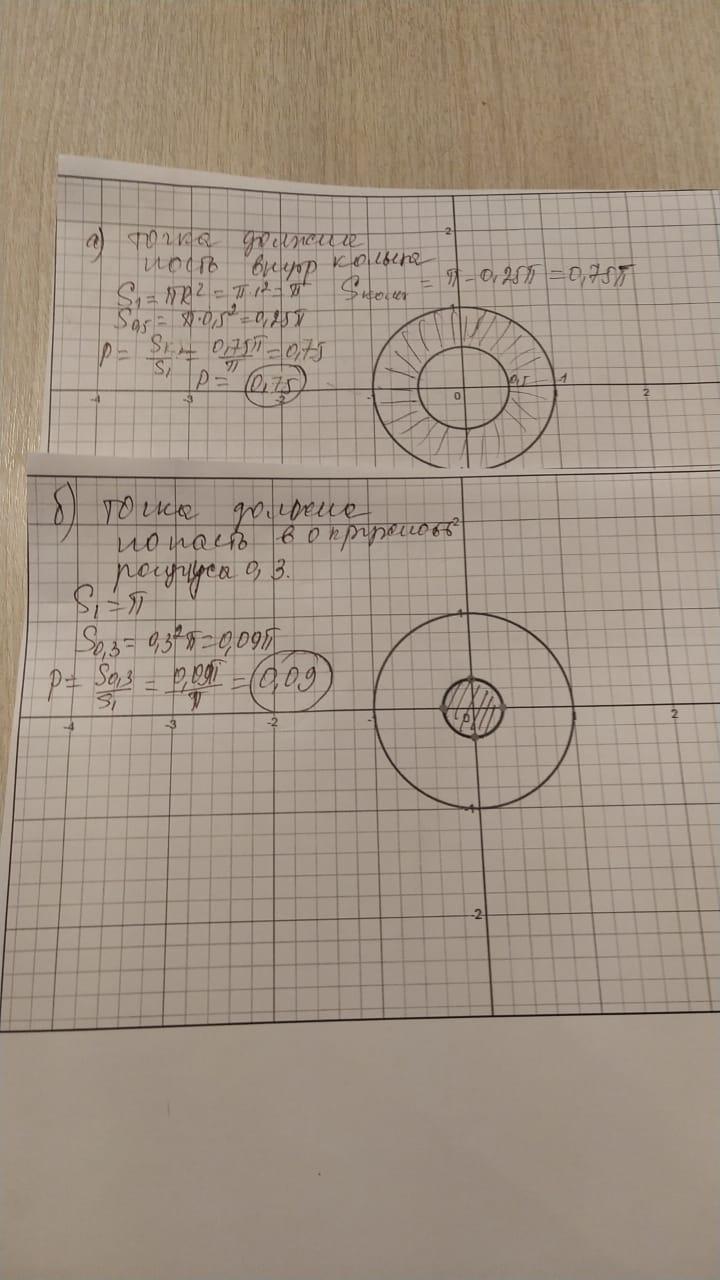 а) точка должна
попасть внутр кольца
S₁ = πR² = π·1² = π
Sкольц = π - 0,25π = 0,75π
S₀,₅ = π·0,5² = 0,25π
P = = 0,75π/π = 0,75
P = 0,75
2
1
-4 -3 -2 -1 0 0,5 1 2
б) точка должна
попасть в
радиуса 0,3.
S₁ = π
S₀,₃ = 0,3²π = 0,09π
P = S₀,₃/S₁ = 0,09π/π = 0,09
2
1
-4 -3 -2 -1 0 2
-1
-2